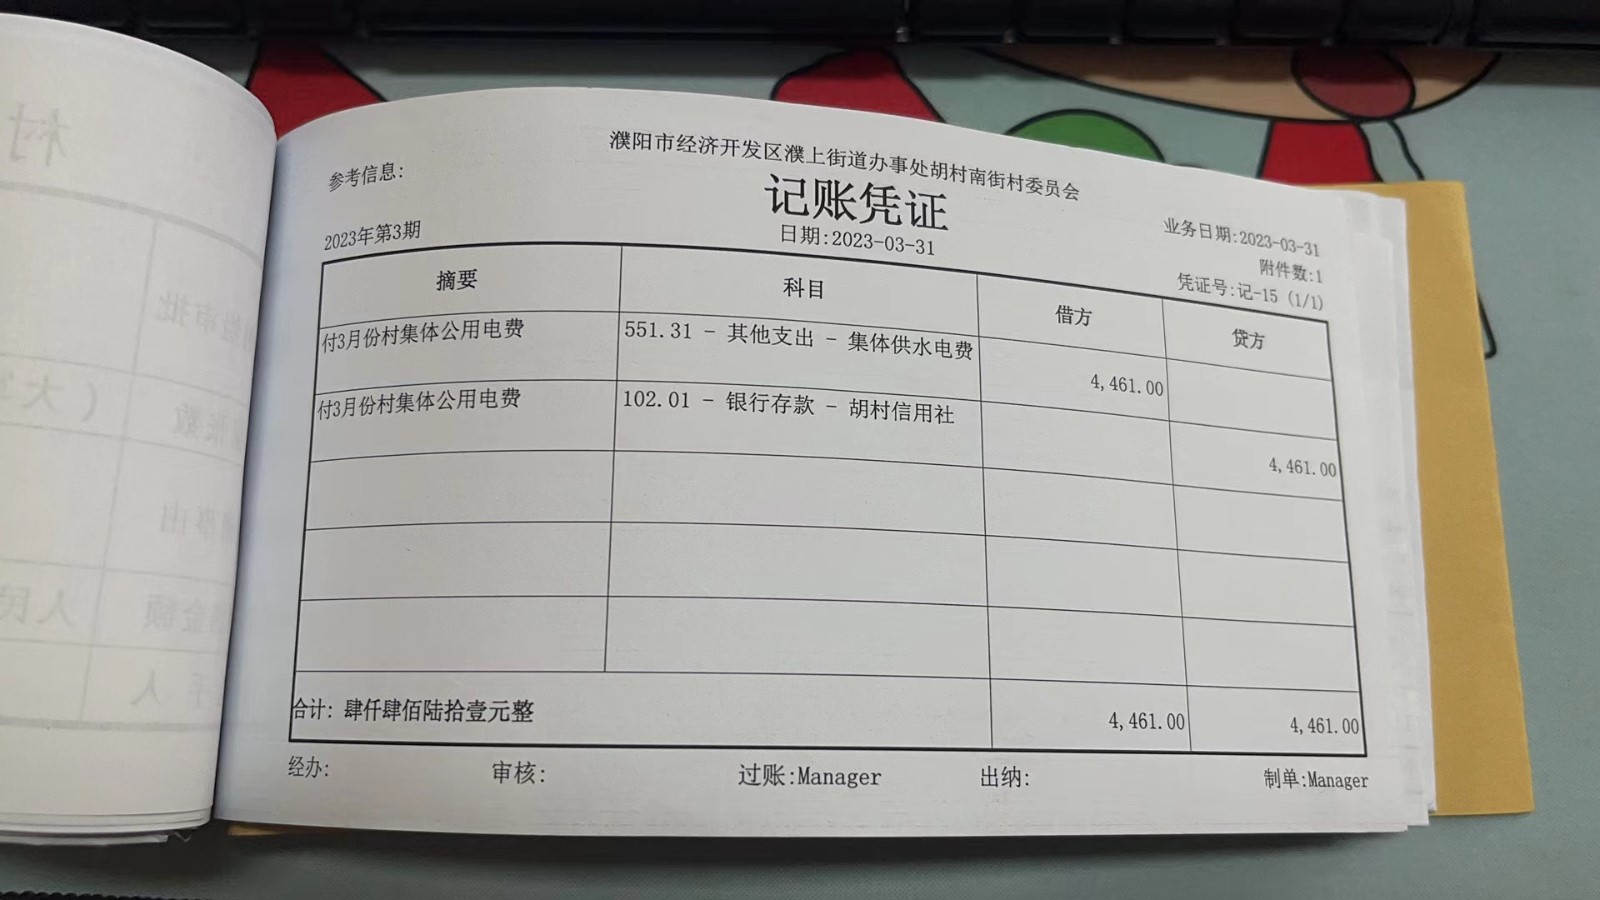 濮阳市经济开发区濮上街道办事处胡村南街村委员会
参考信息:
记账凭证
2023年第3期
日期:2023-03-31
业务日期:2023-03-31
附件数:1
凭证号:记-15 (1/1)
摘要 科目 借方 贷方
付3月份村集体公用电费 551.31 - 其他支出 - 集体供水电费 4,461.00
付3月份村集体公用电费 102.01 - 银行存款 - 胡村信用社 4,461.00
合计: 肆仟肆佰陆拾壹元整 4,461.00 4,461.00
经办: 审核: 过账:Manager 出纳: 制单:Manager